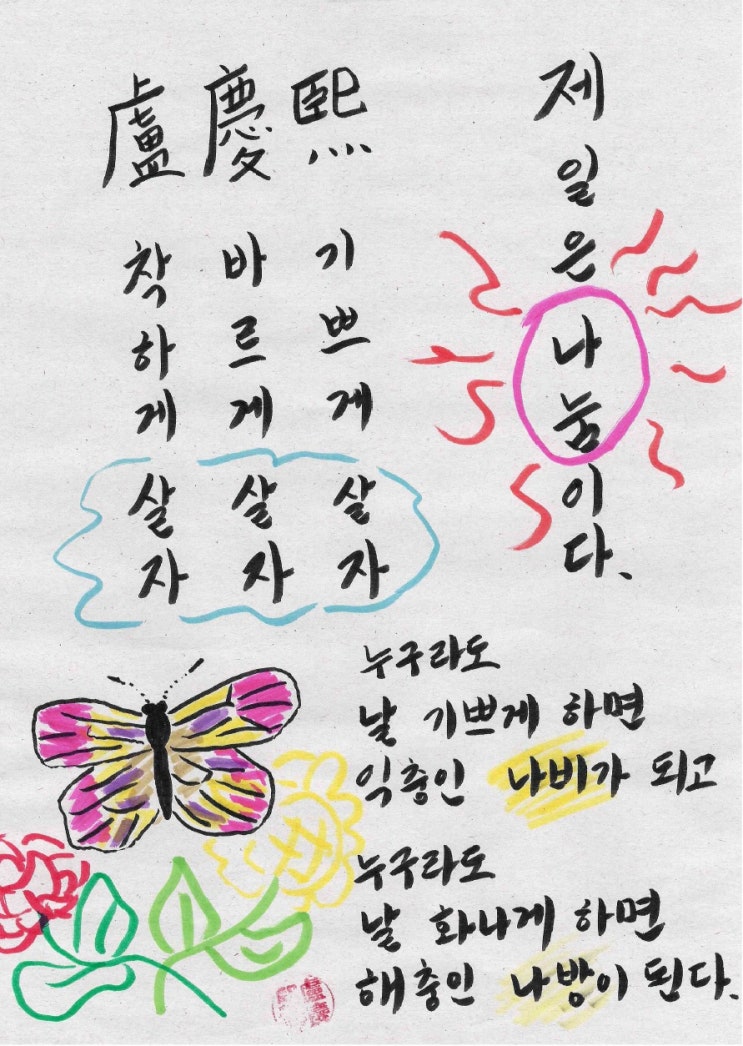 盧慶熙
착하게 살자
바르게 살자
기쁘게 살자
제일은 나눔이다.
누구라도
날 기쁘게 하면
익충인 나비가 되고
누구라도
날 화나게 하면
해충인 나방이 된다.